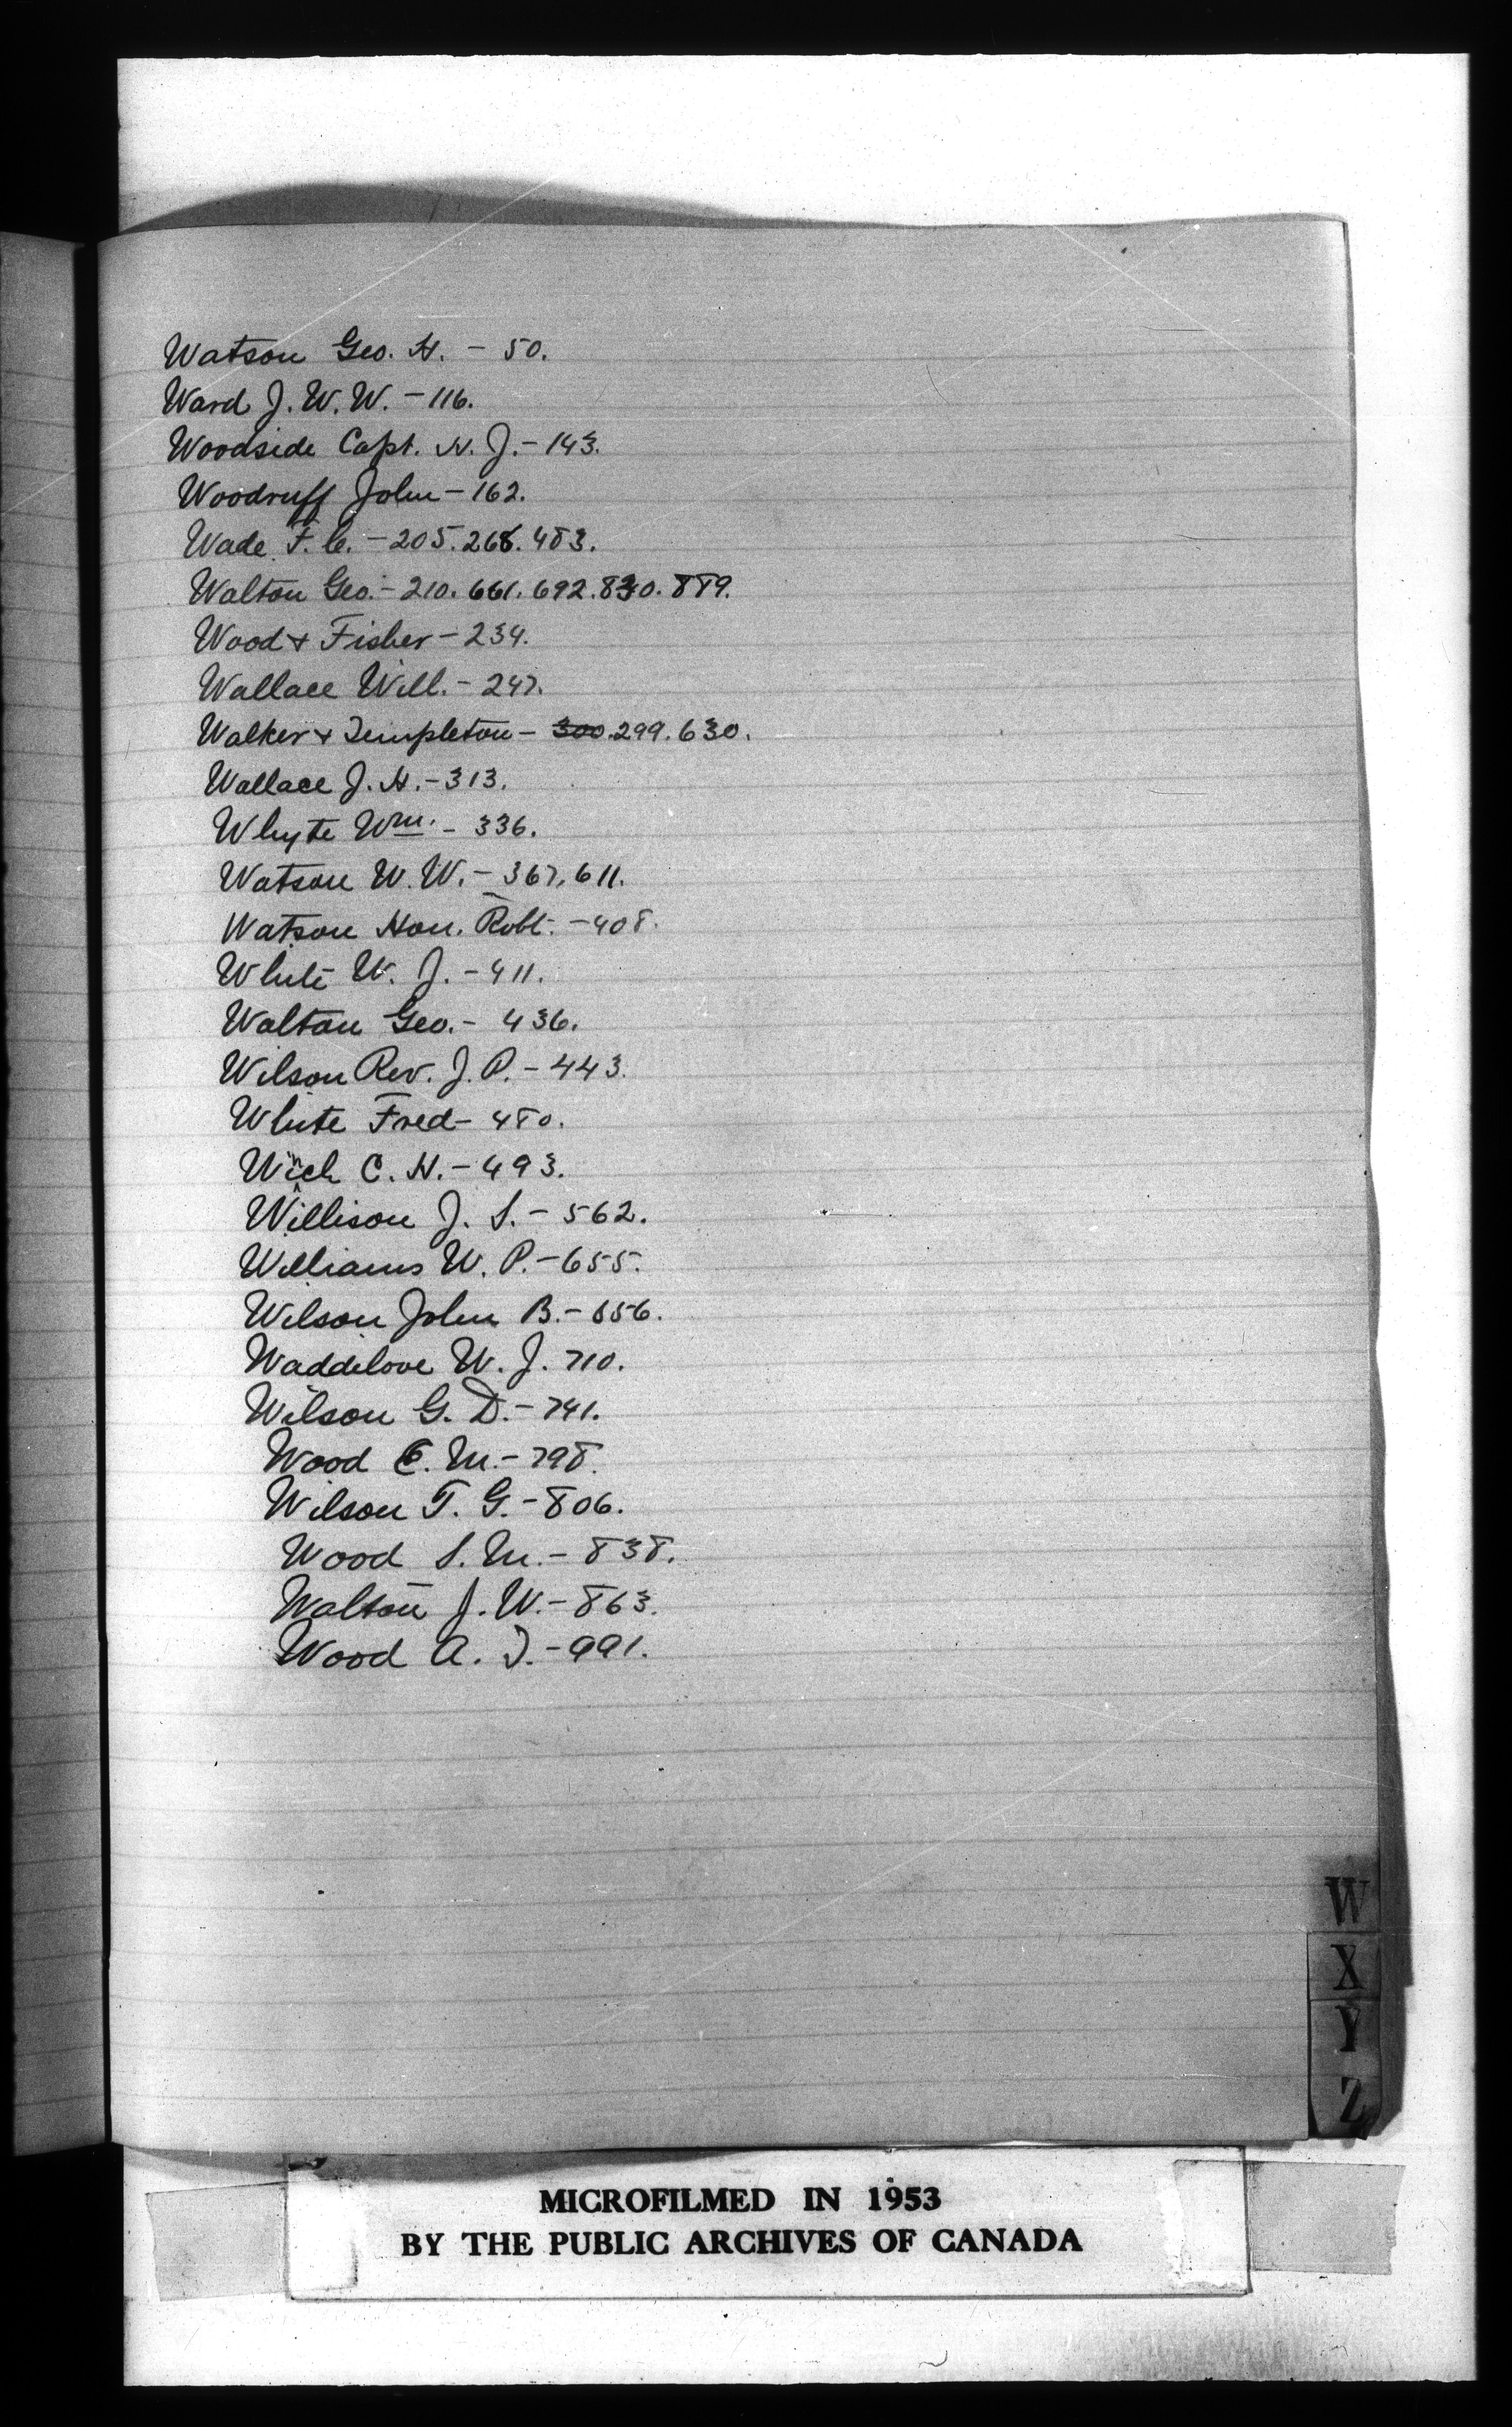 Watson Geo. H. - 50.
Ward J. W. W. - 116.
Woodside Capt. H. J. - 143.
Woodruff John - 162.
Wade F. C. - 205. 268. 483.
Walton Geo. - 210. 661. 692. 830. 889.
Wood & Fisher - 234.
Wallace Will. - 247.
Walker & Templeton - 300. 299. 630.
Wallace J. H. - 313.
Whyte Wm. - 336.
Watson W. W. - 367, 611.
Watson Hon. Robt. - 408.
White W. J. - 411.
Walton Geo. - 436.
Wilson Rev. J. P. - 443.
White Fred - 480.
Winch C. H. - 493.
Willison J. S. - 562.
Williams W. P. - 655.
Wilson John B. - 656.
Waddilove W. J. 710.
Wilson G. D. - 741.
Wood C. M. - 798.
Wilson T. G. - 806.
Wood S. M. - 838.
Walton J. W. - 863.
Wood A. J. - 991.
W
X
Y
Z
MICROFILMED IN 1953
BY THE PUBLIC ARCHIVES OF CANADA